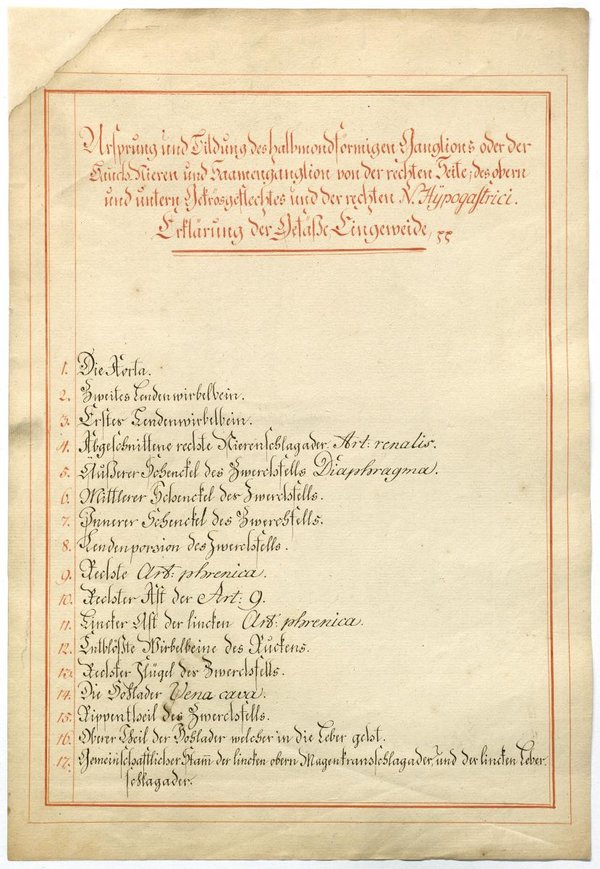 Ursprung und Bildung des halbmondförmigen Ganglions oder der
Rück Nieren und Saamenganglion von der rechten Seite, des obern
und untern Gekrösgeflechtes und der rechten N. Hÿpogastrici.
Erklärung der Gefäße Eingeweide,
1. Die Aorta.
2. Zweites Lendenwirbelbein.
3. Erstes Lendenwirbelbein.
4. Abgeschnittene rechte Nierenschlagader Art: renalis.
5. Äußerer Schenckel des Zwerchfells Diaphragma.
6. Mittlerer Schenckel des Zwerchfells.
7. Innerer Schenckel des Zwerchfells.
8. Lendenporsion des Zwerchfells.
9. Rechte Art: phrenica.
10. Rechter Ast der Art: 9.
11. Lincker Ast der lincken Art: phrenica.
12. Entblößte Wirbelbeine des Ruckens.
13. Rechter Flügel des Zwerchfells.
14. Die Hohlader Vena cava.
15. Rippentheil des Zwerchfells.
16. Oberer Theil der Hohlader welcher in die Leber geht.
17. Gemeinschaftlicher Stam̄ der lincken obern Magenkransschlagader, und der lincken Leber-
schlagader.